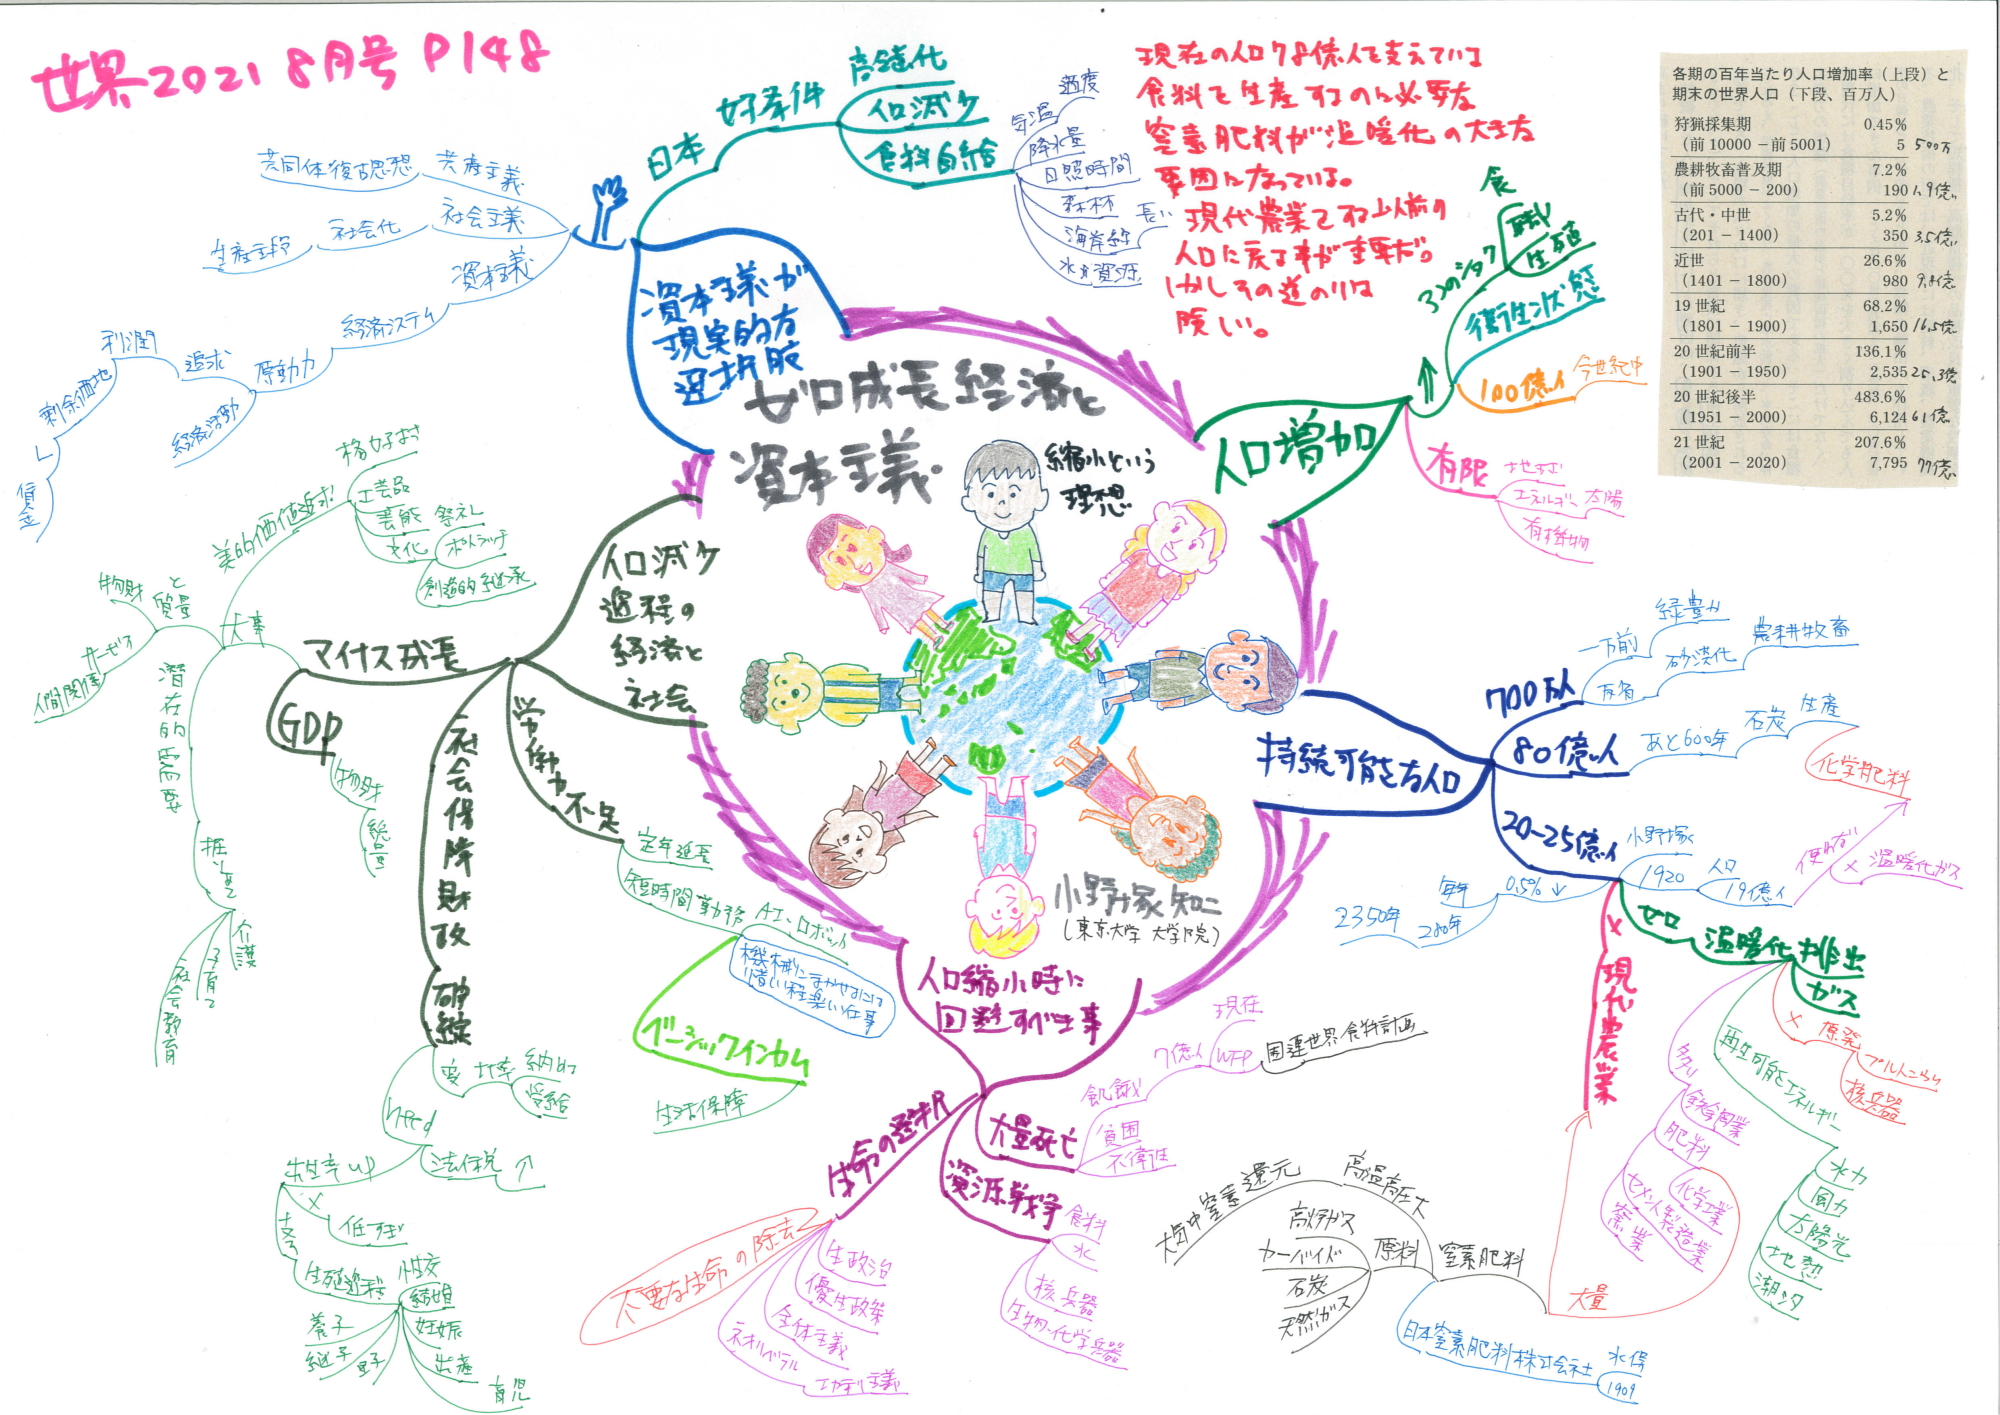 世界2021 8月号 P148
ゼロ成長経済と
資本主義
縮小という
理想
小野塚知二
(東京大学 大学院)
現在の人口78億人を支えている
食料を生産するのに必要な
窒素肥料が温暖化の大きな
要因になっている。
現代農業である以前の
人口に戻す事が重要だ。
しかしその道のりは
険しい。
各期の百年当たり人口増加率（上段）と
期末の世界人口（下段、百万人）
狩猟採集期 0.45%
（前10000 − 前5001） 5 500万
農耕牧畜普及期 7.2%
（前5000 − 200） 190 1.9億
古代・中世 5.2%
（201 − 1400） 350 3.5億
近世 26.6%
（1401 − 1800） 980 9.8億
19世紀 68.2%
（1801 − 1900） 1,650 16.5億
20世紀前半 136.1%
（1901 − 1950） 2,535 25.3億
20世紀後半 483.6%
（1951 − 2000） 6,124 61億
21世紀 207.6%
（2001 − 2020） 7,795 77億
人口増加
↑
3つのショク
食
職
生殖
衛生状態
100億人
今世紀中
有限
地球
エネルギー 太陽
有機物
持続可能な人口
700万人
一万前
緑豊か
反省
砂漠化
農耕牧畜
80億人
あと600年
石炭
生産
化学肥料
20-25億人
小野塚
1920
人口
19億人
使わず
×
温暖化ガス
0.5%↓
毎年
280年
2350年
ゼロ
温暖化
排出
ガス
×
原発
プルトニウム
核兵器
再生可能エネルギー
水力
風力
太陽光
地熱
潮汐
多い
鉄鋼業
肥料
化学工業
セメント製造業
窯業
×
現代農業
大量
窒素肥料
原料
高炉ガス
カーバイド
石炭
天然ガス
高温高圧
大気中窒素還元
日本窒素肥料株式会社
水俣
1909
人口縮小時に
回避すべき事
大量死亡
飢餓
7億人
現在
WFP
国連世界食料計画
貧困
不衛生
資源戦争
食料
水
核兵器
生物・化学兵器
生命の選択
不要な生命の除去
生政治
優生政策
全体主義
ネオリベラル
エガテリ主義
人口減少
過程の
経済と
社会
マイナス成長
大事
美的価値追求!
格好よさ
工芸品
芸能
祭礼
文化
ポトラッチ
創造的継承
物財
と
質量
サービス
人間関係
潜在的需要
掘りおこして
介護
子育て
社会教育
GDP
物財
総量
社会保障財政
破綻
変
比率
納め
受給
need
法人税
↑
出生率up
×
低すぎ
支える
生殖過程
性交
結婚
妊娠
出産
育児
養子
継子
里子
労働力
不足
定年延長
短時間勤務
AI・ロボット
機械にまかせるには
惜しい程楽しい仕事
ベーシックインカム
生活保障
資本主義が
現実的な
選択肢
日本
好条件
高齢化
人口減少
食料自給
気温
適度
降水量
日照時間
森林
海岸線
長い
水資源
共産主義
共同体復古思想
社会主義
社会化
生産手段
資本主義
経済システム
原動力
追求
利潤
経済活動
剰余価値
賃金